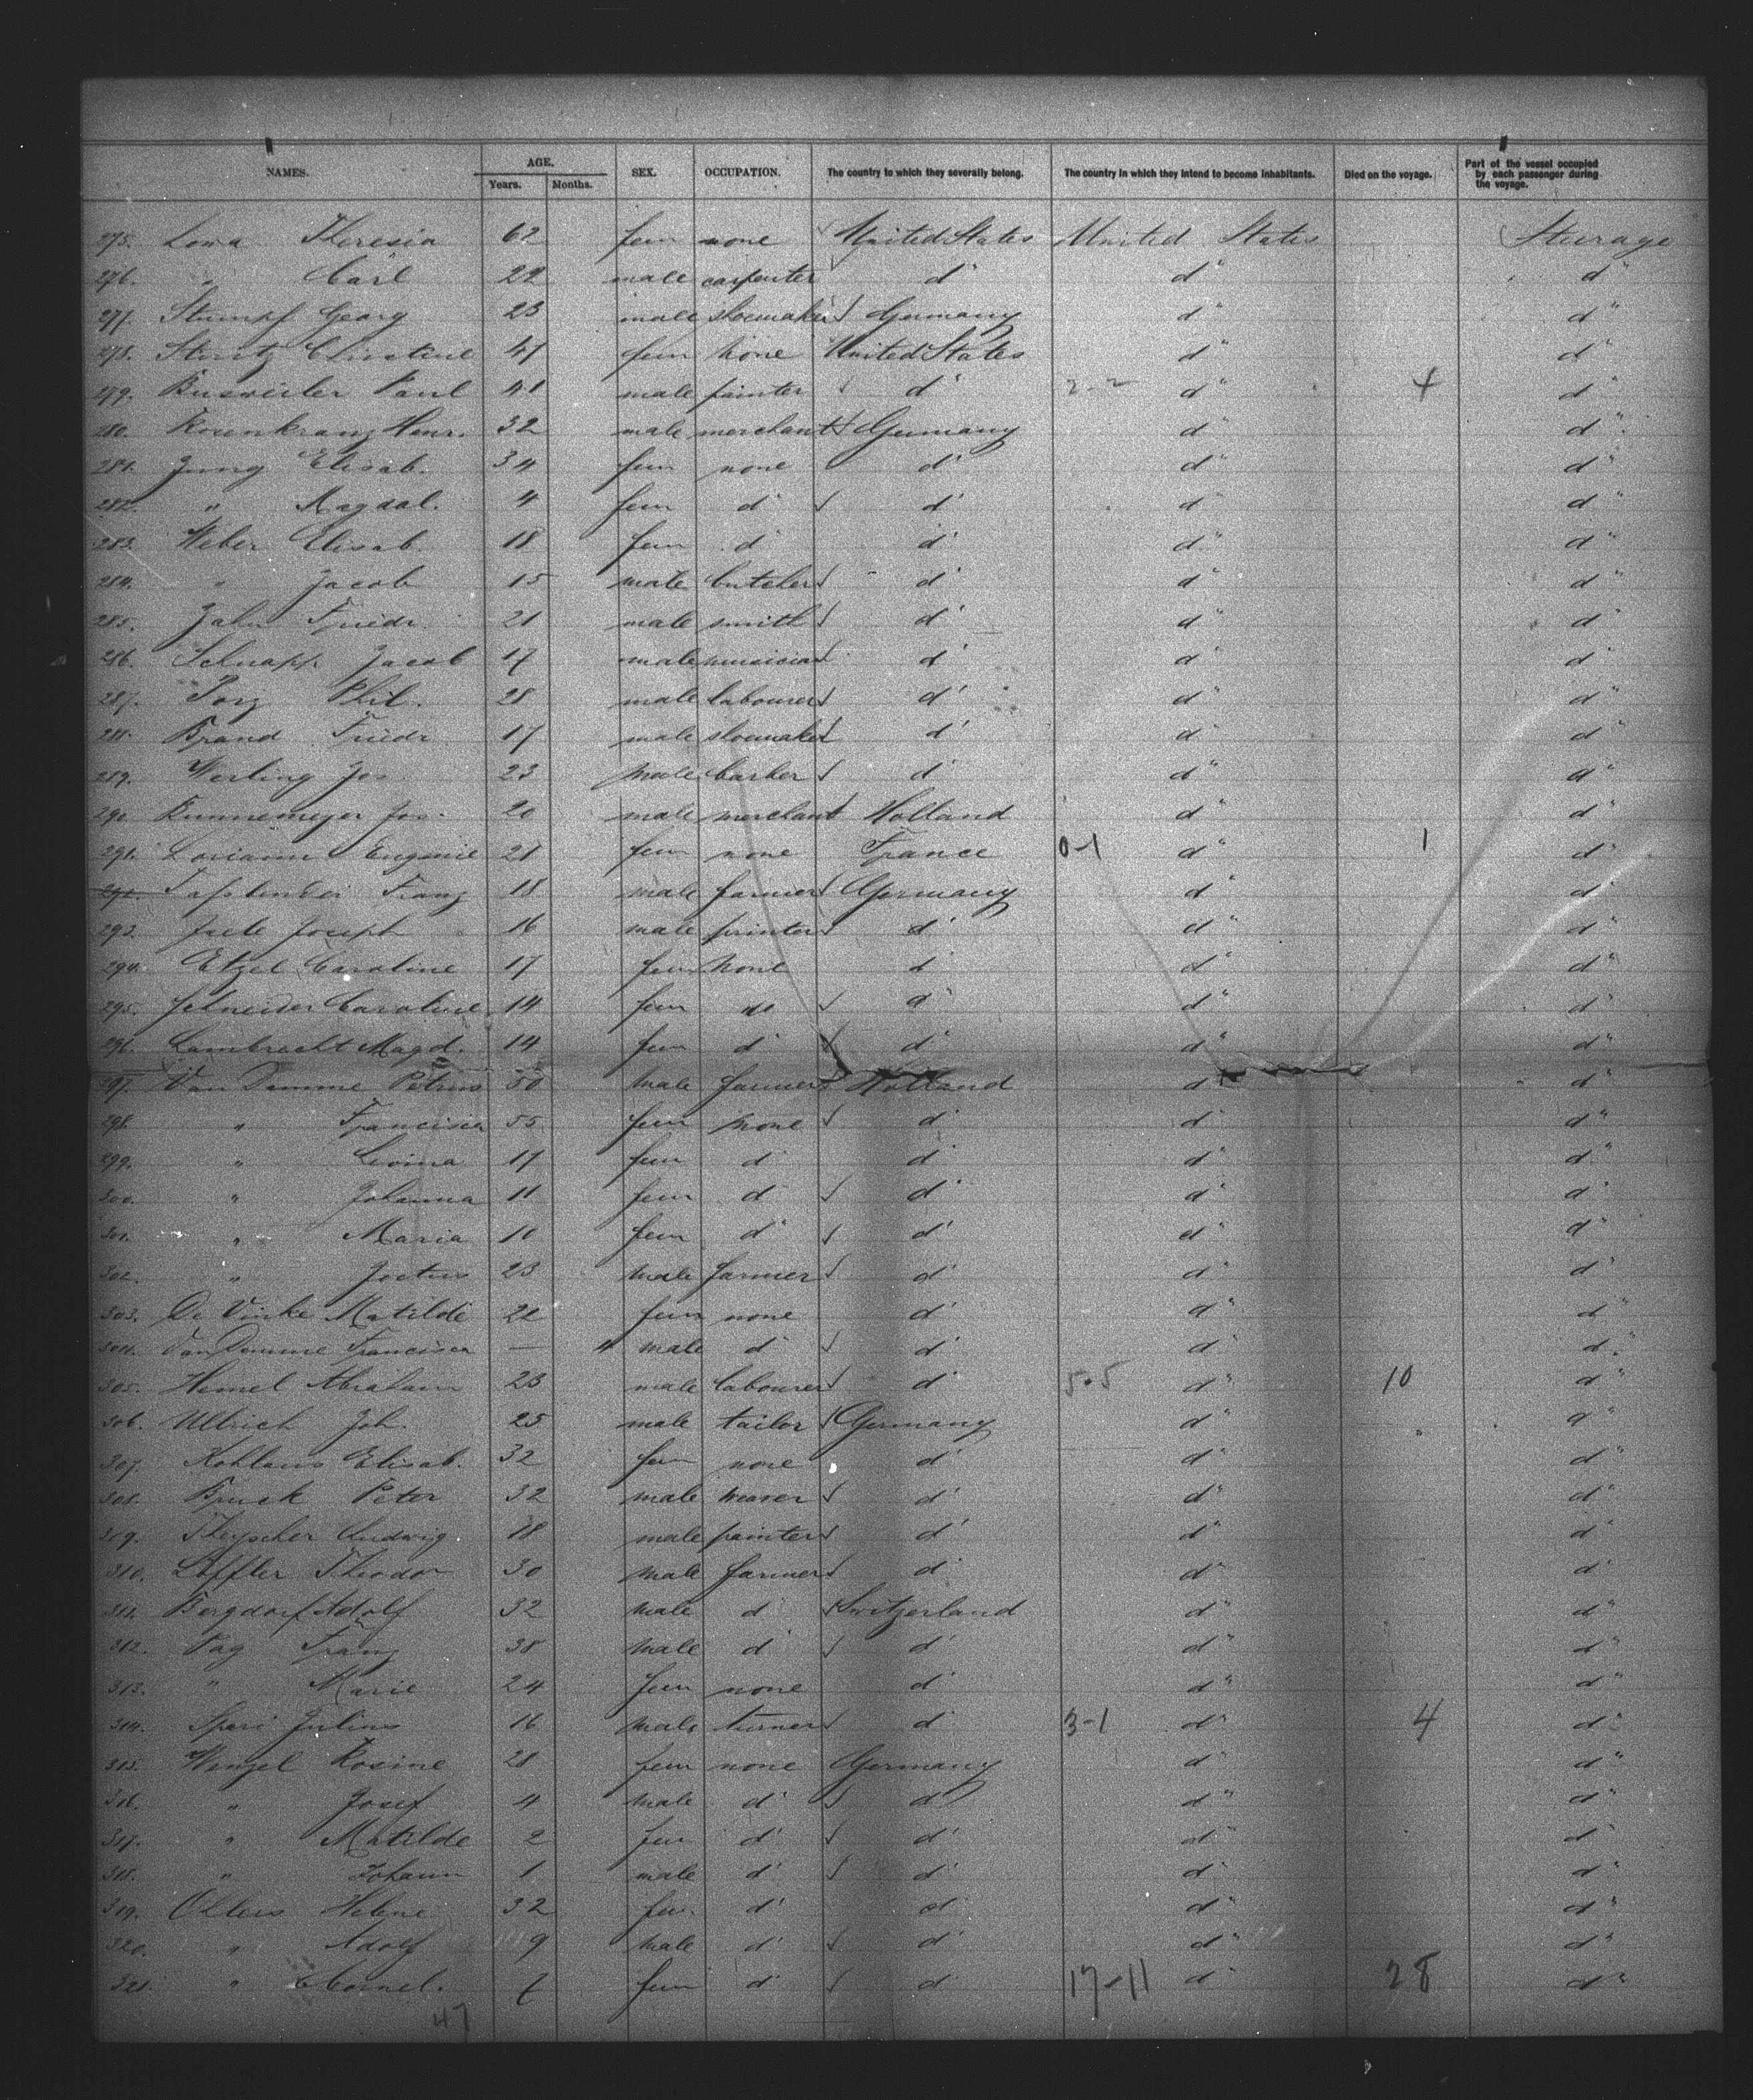 NAMES. AGE. Years. Months. SEX. OCCUPATION. The country to which they severally belong. The country in which they intend to become inhabitants. Died on the voyage. Part of the vessel occupied by each passenger during the voyage.
275. Theresia 62 fem none United States United States Steerage
276. " Carl 22 male carpenter d" d" d"
277. Stumpf Georg 23 male shoemaker Germany d" d"
278. 47 fem none United States d" d"
279. Busweiler Paul 41 male painter d" 2-2 d" 4 d"
280. Rosenkranz Henr. 32 male merchant Germany d" d"
281. Jung Elisab. 34 fem none d" d" d"
282. " Magdal. 4 fem d" d" d" d"
283. Weber Elisab. 18 fem d" d" d" d"
284. " Jacob 15 male butcher d" d" d"
285. Jahn Friedr. 21 male smith d" d" d"
286. Schnapp Jacob 17 male musician d" d" d"
287. Phil. 28 male labourer d" d" d"
288. Brand Friedr. 17 male shoemaker d" d" d"
289. Werling Jos. 23 male barber d" d" d"
290. Runnemeyer Jos. 20 male merchant Holland d" d"
291. Eugenie 21 fem none France 0-1 d" 1 d"
292. Fassbender Franz 18 male farmer Germany d" d"
293. Joseph 16 male printer d" d" d"
294. Etzel Caroline 17 fem none d" d" d"
295. Schneider Caroline 14 fem do d" d" d"
296. Lambrecht Magd. 14 fem d" d" d" d"
297. Van Damme Petrus 50 male farmer Holland d" d"
298. " Francisca 55 fem none d" d" d"
299. " 17 fem d" d" d" d"
300. " Johanna 11 fem d" d" d" d"
301. " Maria 10 fem d" d" d" d"
302. " 23 male farmer d" d" d"
303. De Vinke Matilde 22 fem none d" d" d"
304. Van Damme Francisca — 4 male d" d" d" d"
305. Hemel Abraham 23 male labourer d" 5-5 d" 10 d"
306. Ullrich Joh. 25 male tailor Germany d" d"
307. Kohlaus Elisab. 32 fem none d" d" d"
308. Bruck Peter 32 male weaver d" d" d"
309. Ludwig 18 male painter d" d" d"
310. Löffler Theodor 30 male farmer d" d" d"
311. Bergdorf Adolf 32 male d" Switzerland d" d"
312. Pag Franz 38 male d" d" d" d"
313. " Marie 24 fem none d" d" d"
314. Julius 16 male turner d" 3-1 d" 4 d"
315. Wenzel Rosine 21 fem none Germany d" d"
316. " Josef 4 male d" d" d" d"
317. " Matilde 2 fem d" d" d" d"
318. " Johann 1 male d" d" d" d"
319. Helene 32 fem d" d" d" d"
320. " Adolf 9 male d" d" d" d"
321. " Cornel. fem d" d" 17-11 d" 28 d"
47